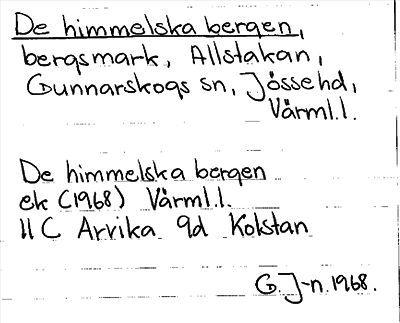 De himmelska bergen,
bergsmark, Allstakan,
Gunnarskogs sn, Jösse hd,
Värml.l.
De himmelska bergen
ek (1968) Värml.l.
11 C Arvika 9d Kolstan
G. J-n. 1968.